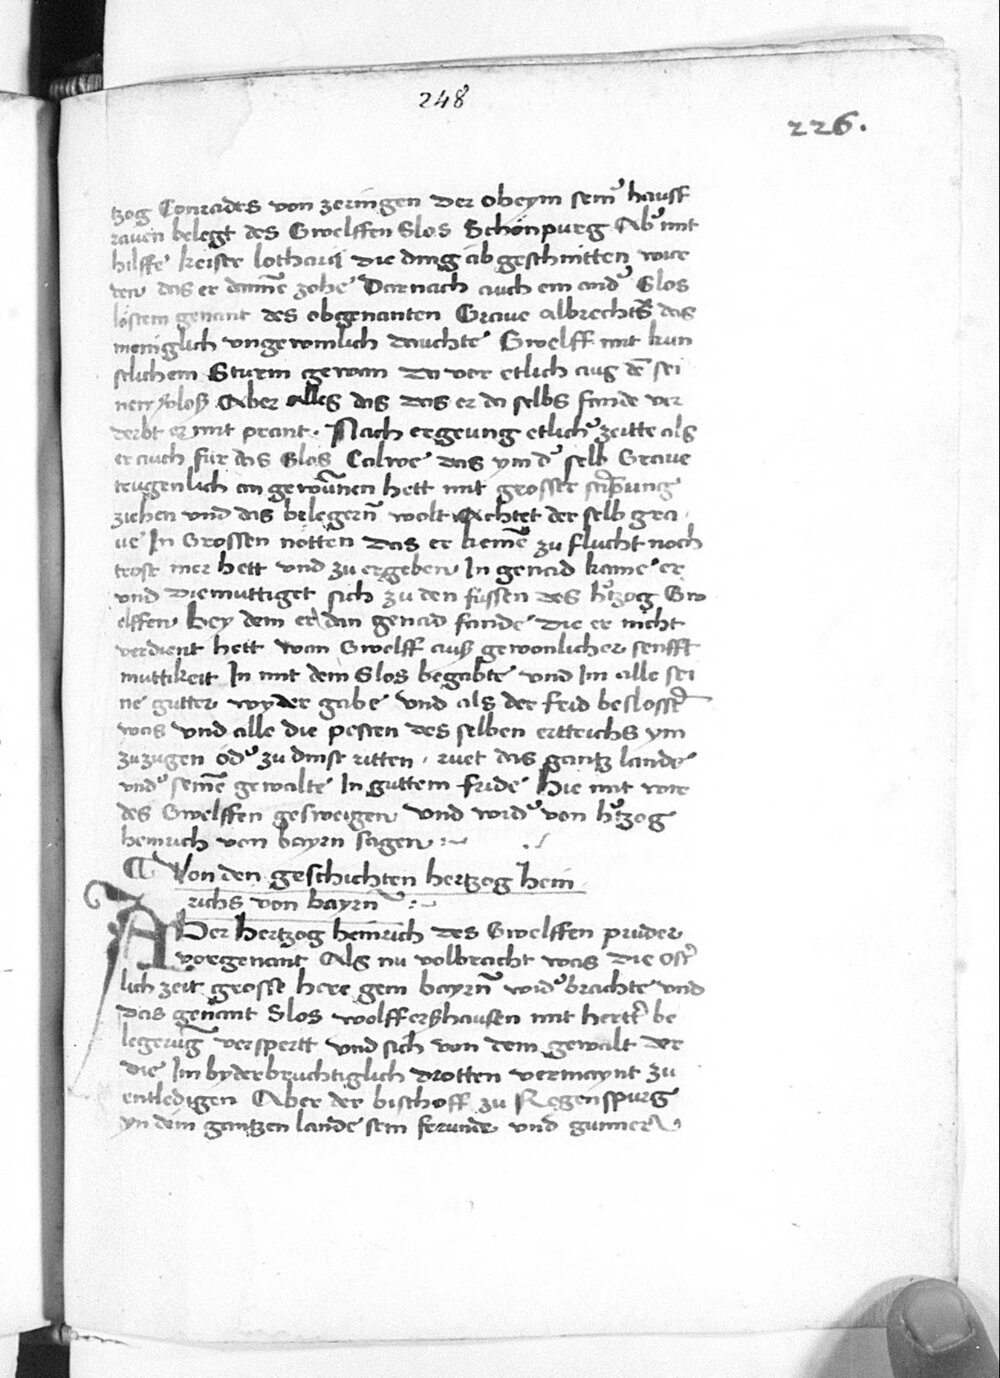 248
226.
tzog Conrades von zeringen der oheym seinꝰ hausf
rauen belegt des Gwelffen Slos Schonpurg Abꝰ mit
hilffe keiser lotharii die ding ab geschnitten wur
den das er danne zohe Darnach auch ein andꝰ Slos
lostein genant des obgenanten Graue albrechts das
meniglich vngewinlich dauchte Gwelff mit kun
stlichem Sturm gewan Do vor etlich aus dē sei
nen Aber alles das das er do selbs funde ver
derbt er mit prant. Nach ergeung etlichꝰ zeitte als
er auch fur das Slos Calwe das vm dꝰ selb Graue
teugenlich an gewūnen hett mit grosser
ziehen vnd das belegern̄ wolt Achtet der selb gra
ue In Grossen nötten das er kemē zu flucht noch
trost mer hett vnd zu ergeben In genad kame er
vnd diemuttiget sich zu den füssen des hꝰtzog Gw
elffen bey dem er dan genad funde die er nicht
verdient hett wan Gwelff auß gewonlicher senfft
muttikeit In mit dem Slos begabte vnd Im alle sei
ne gutter wyder gabe vnd als der frid beslossē
was vnd alle die pesten des selben ertreichs ym
zuzugen odꝰ zu dinst ritten . ruet das gantz lande
vndꝰ seinē gewalte In guttem fride Hie mit wir
des Gwelffen gesweigen vnd widꝰ von hꝰtzog
heinrich von bayrn sagen :~
¶ Von den geschichten hertzog hein
richs von bayrn :~
ADer hertzog heinrich des Gwelffen pruder
vorgenant Als nu volbracht was die ostꝰ
lich zeit grosse here gein bayrn̄ widꝰ brachte vnd
das genant Slos wolfferßhausen mit be
legerūg verspertt vnd sich von dem gewalt der
die Im vermaynt zu
entledigen Aber der bischoff zu Regenspurg
yn dem gantzen lande sein freunde vnd gunner